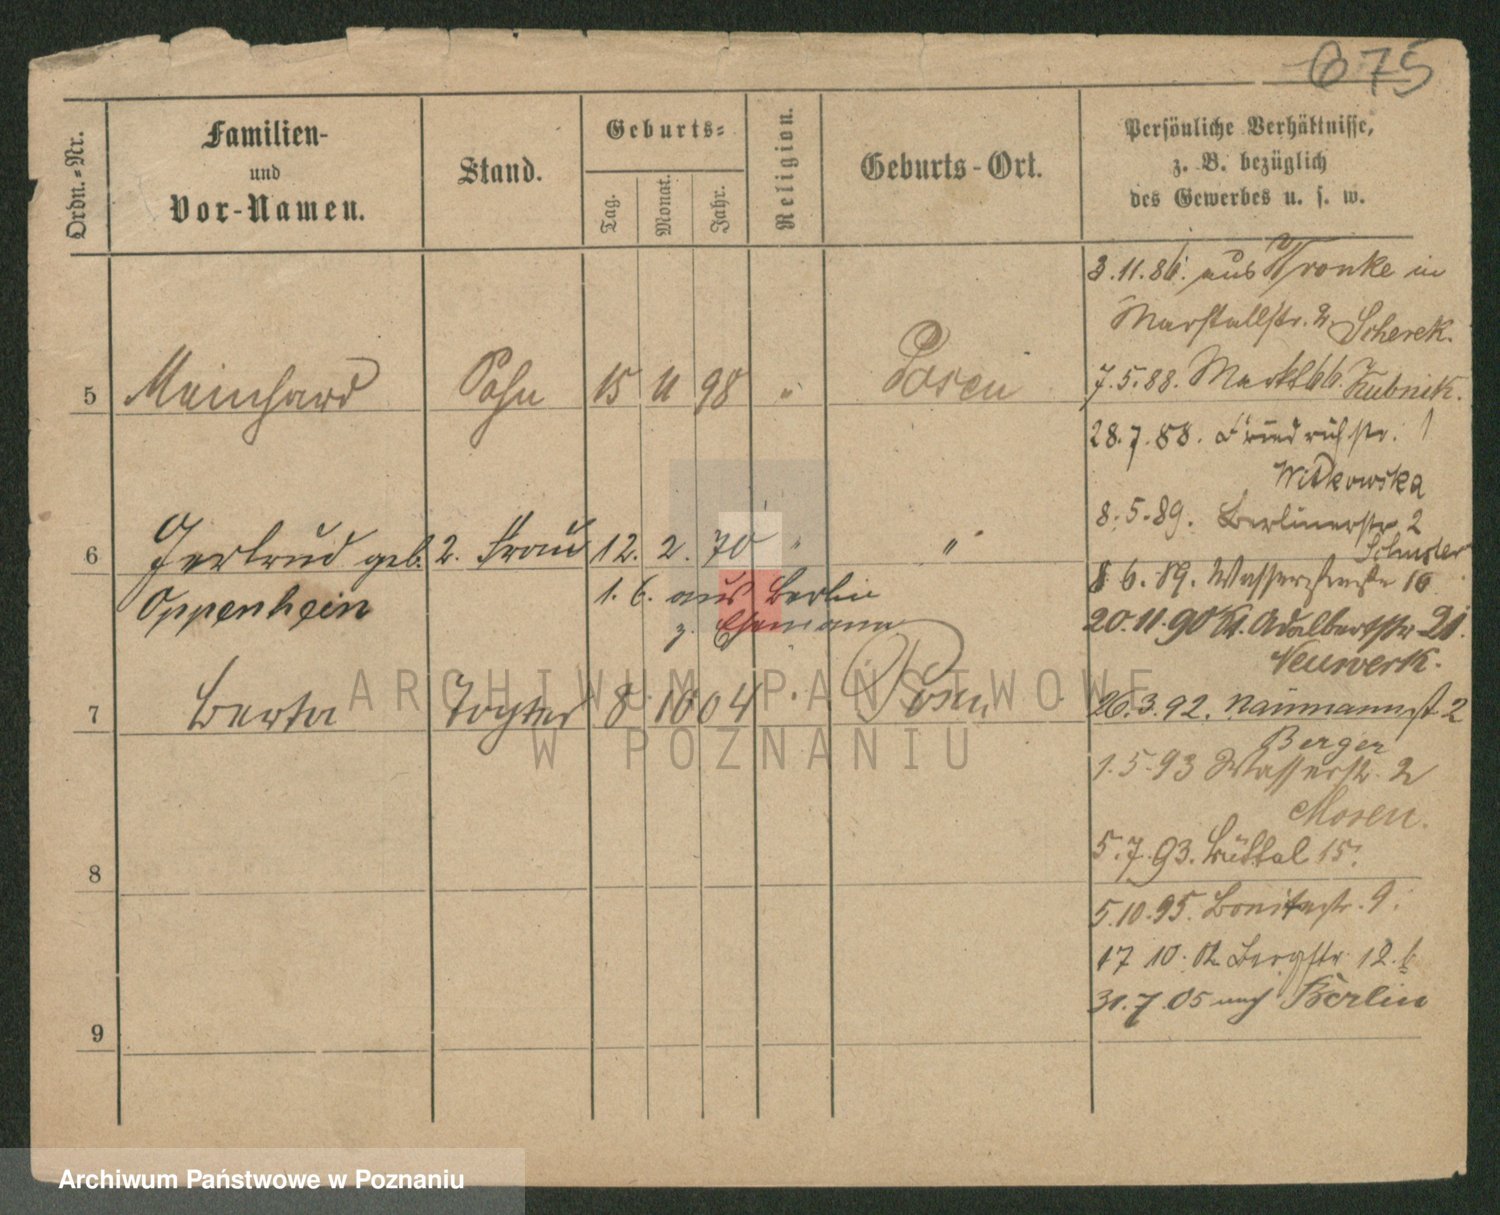 675
Ordn.-Nr.
Familien-
und
Vor-Namen.
Stand.
Geburts-
Tag.
Monat.
Jahr.
Religion.
Geburts-Ort.
Persönliche Verhältnisse,
z. B. bezüglich
des Gewerbes u. s. w.
5 Meinhard Sohn 15 11 98 " Posen
6 Gertrud geb. 2. Frau 12. 2. 70 " "
Oppenheim 1. 6. aus Berlin
z. Ehemann
7 Berta Tochter 8 10 04 " Posen
8
9
3.11.86. aus Wronke in
Marstallstr. 2 Scherek.
7.5.88. Markt 66. Kubnik.
28.7.88. Friedrichstr. 1
Witkowska
8.5.89. Berlinerstr. 2
Schuster
8 6.89. Wasserstraße 16
20.11.90 Kl. Adalbertstr 21.
Neuwerk.
26.3.92. Naumannst 2
Berger
1.5.93 Wasserstr. 2
Mosen.
5.7.93. Büttel 15.
5.10.95. 9.
17 10. 02 Bergstr. 12.b
31.7.05 nach Berlin
ARCHIWUM PAŃSTWOWE
W POZNANIU
Archiwum Państwowe w Poznaniu